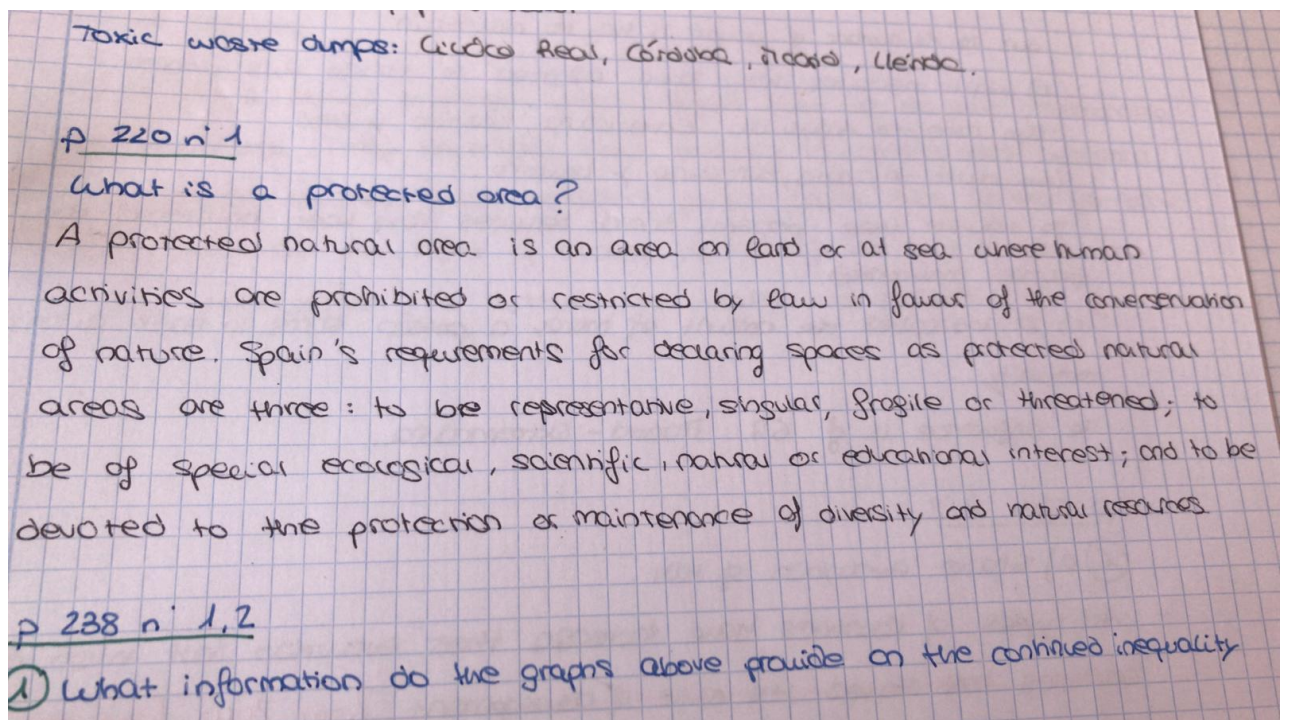 Toxic waste dumps: Ciudad Real, Córdoba, , Lleida.
p 220 nº 1
What is a protected area?
A protected natural area is an area on land or at sea where human
activities are prohibited or restricted by law in favour of the converservation
of nature. Spain's requirements for declaring spaces as protected natural
areas are three: to be representative, singular, fragile or threatened; to
be of special ecological, scientific, natural or educational interest; and to be
devoted to the protection or maintenance of diversity and natural resources
p 238 nº 1,2
1 What information do the graphs above provide on the continued inequality